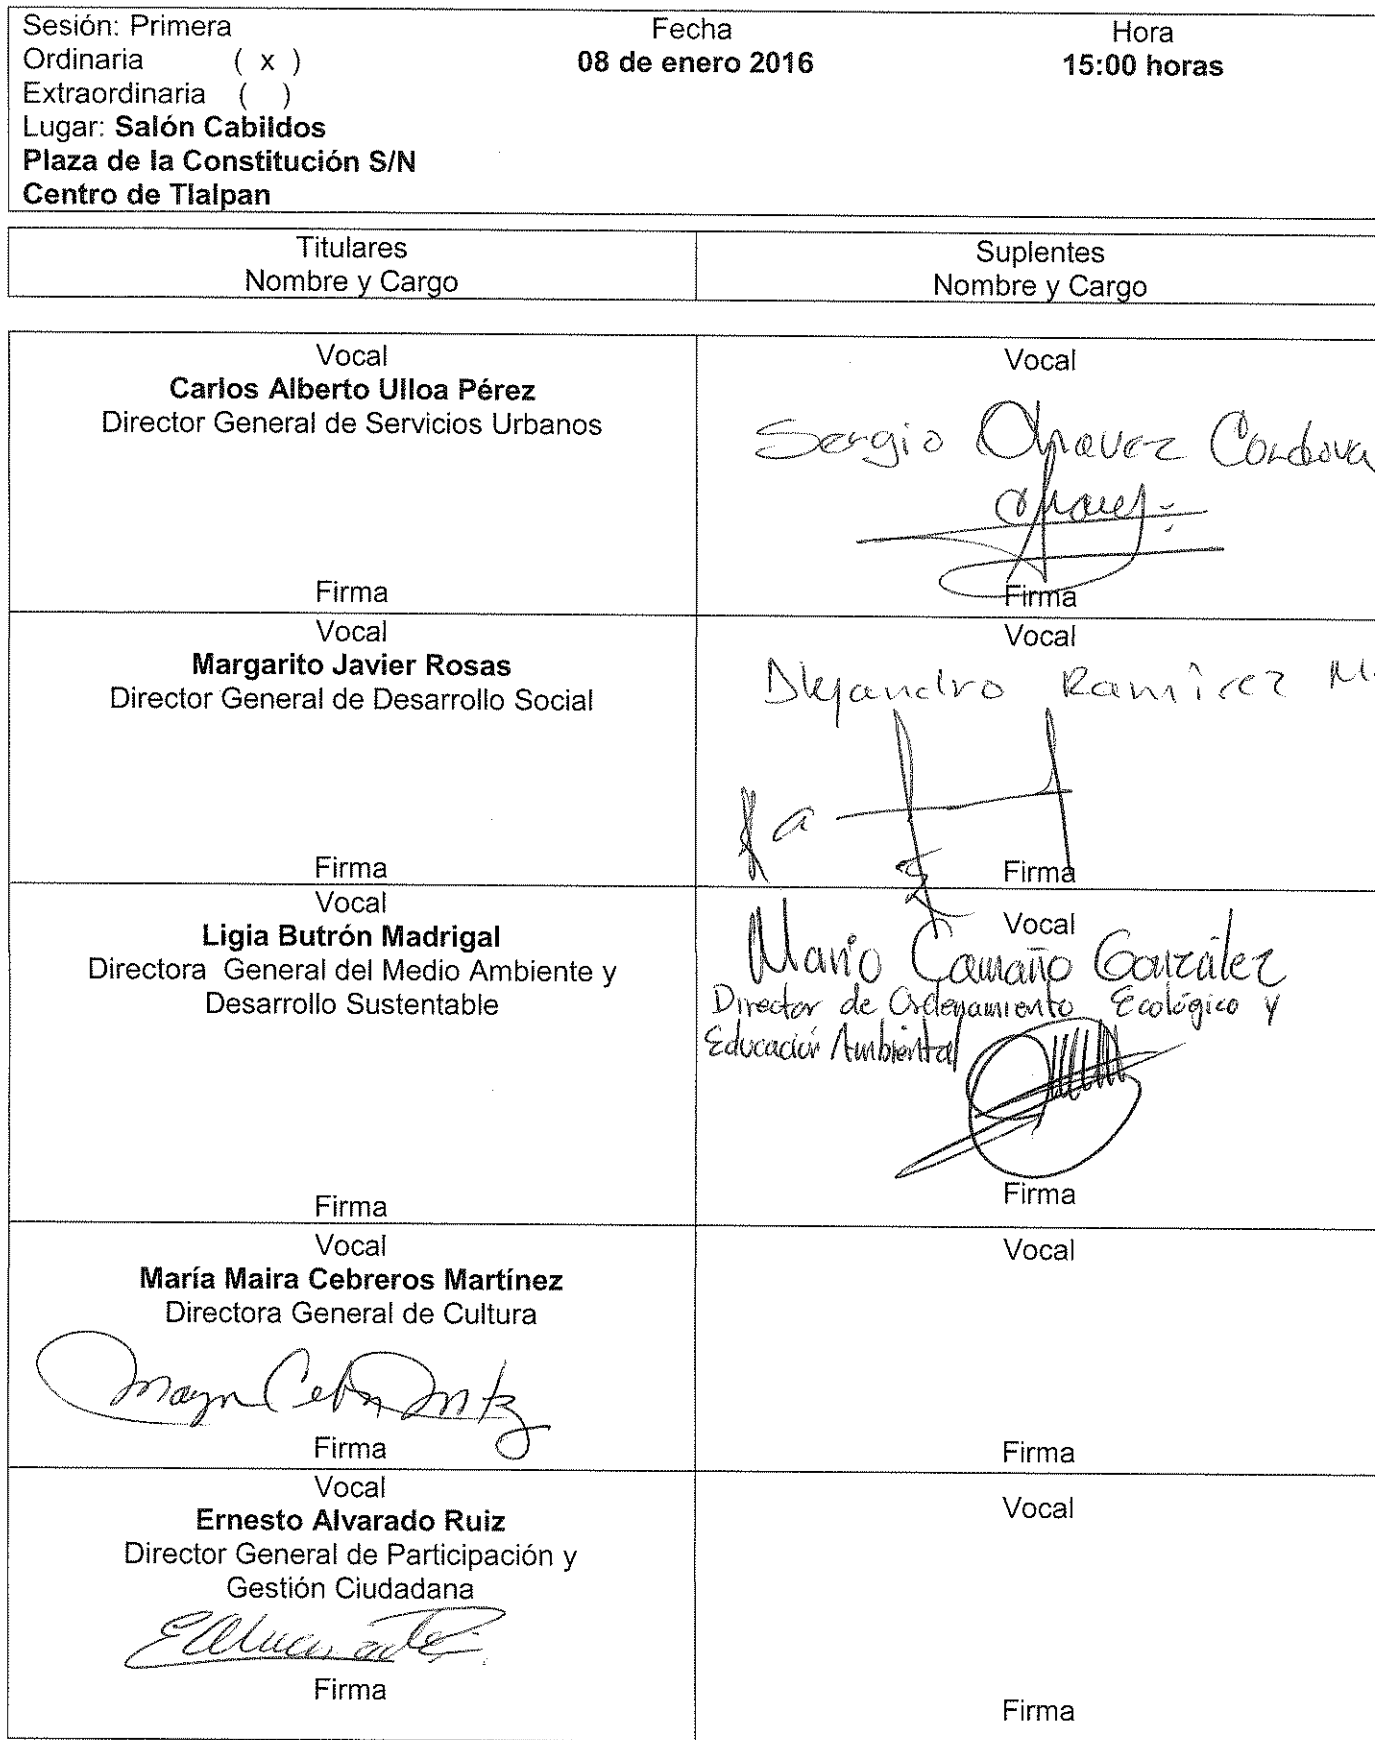 Sesión: Primera
Ordinaria ( x )
Extraordinaria ( )
Lugar: Salón Cabildos
Plaza de la Constitución S/N
Centro de Tlalpan
Fecha
08 de enero 2016
Hora
15:00 horas
Titulares
Nombre y Cargo
Suplentes
Nombre y Cargo
Vocal
Carlos Alberto Ulloa Pérez
Director General de Servicios Urbanos
Firma
Vocal
Sergio Chavez Cordova
Firma
Vocal
Margarito Javier Rosas
Director General de Desarrollo Social
Firma
Vocal
Alejandro Ramírez M.
Firma
Vocal
Ligia Butrón Madrigal
Directora General del Medio Ambiente y
Desarrollo Sustentable
Firma
Vocal
Mario Camaño González
Director de Ordenamiento Ecológico y
Educación Ambiental
Firma
Vocal
María Maira Cebreros Martínez
Directora General de Cultura
Firma
Vocal
Firma
Vocal
Ernesto Alvarado Ruiz
Director General de Participación y
Gestión Ciudadana
Firma
Vocal
Firma